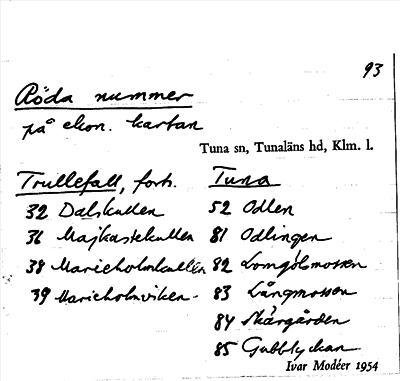 93
Röda nummer
på ekon. kartan
Tuna sn, Tunaläns hd, Klm. l.
Trullefall, forts.
32 Dalskullen
36 Majkastekullen
38 Marieholmskullen
39 Marieholmsviken
Tuna
52 Odlen
81 Odlingen
82 Lomgölsmossen
83 Långmossen
84 Skärgården
85 Gubblyckan
Ivar Modéer 1954